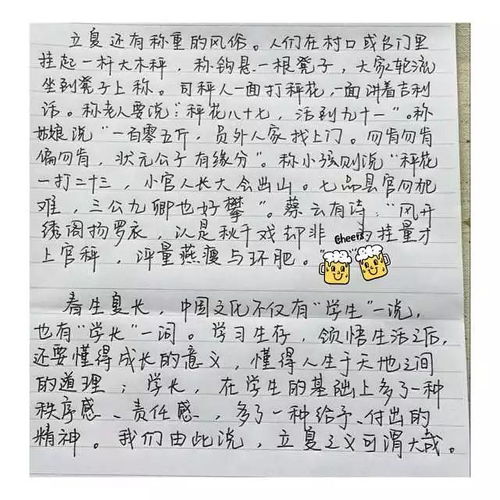 立夏还有称重的风俗。人们在村口或台门里
挂起一杆大木秤，秤钩悬一根凳子，大家轮流
坐到凳子上称。司秤人一面打秤花，一面讲着吉利
话。称老人要说："秤花八十七，活到九十一"。称
姑娘说"一百零五斤，员外人家找上门。勿肯勿肯
偏勿肯，状元公子有缘分"。称小孩则说"秤花
一打二十三，小官人长大会出山。七品县官勿犯
难，三公九卿也好攀"。蔡云有诗："风开
绣阁扬罗衣，认是秋千戏却非
挂量才
上官秤，评量燕瘦与环肥。
Cheers
春生夏长，中国文化不仅有"学生"一说，
也有"学长"一词。学习生存，领悟生活之后，
还要懂得成长的意义，懂得人生于天地之间
的道理；学长，在学生的基础上多了一种
秩序感、责任感，多了一种给予、付出的
精神。我们由此说，立夏之义可谓大哉。